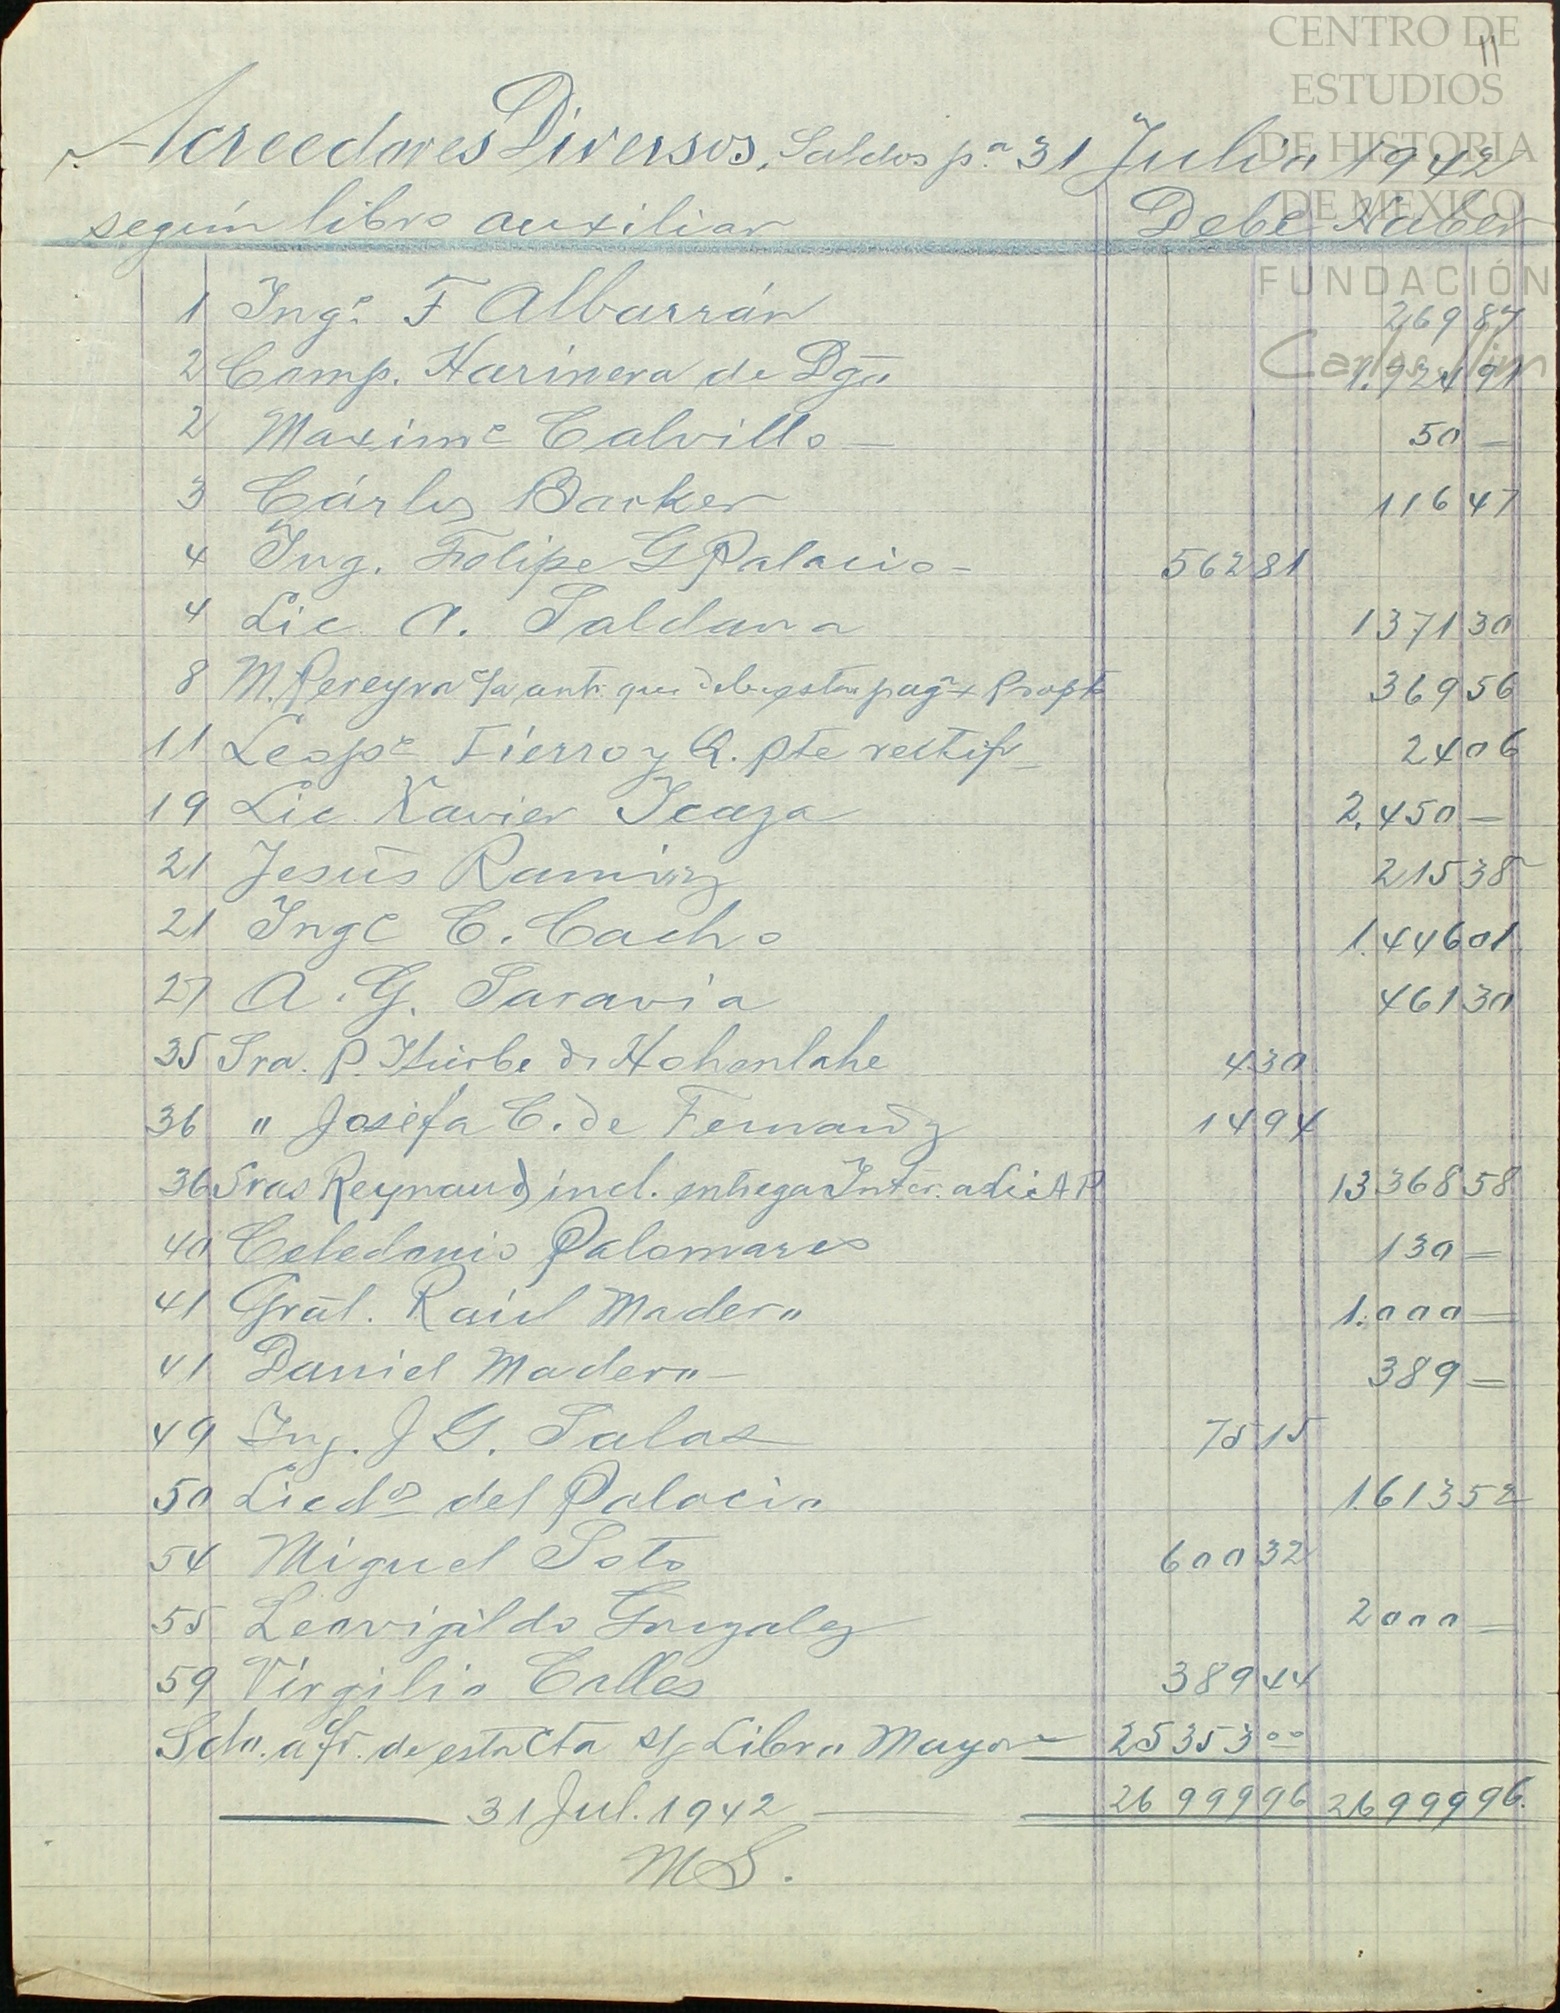 CENTRO DE
ESTUDIOS
DE HISTORIA
DE MÉXICO
FUNDACIÓN
Carlos Slim
11
Acreedores Diversos, Saldos pa. 31 Julio 1942
según libro auxiliar Debe Haber
1 Ingo. F Albarrán 269 87
2 Comp. Harinera de Dgo 1.924 91
2 Maximo Calvillo — 50 —
3 Cárlos Barker 116 47
4 Ing. Felipe G Palacio — 562 81
4 Lic A. Saldana 1371 30
8 M. Pereyra 369 56
11 Leopo Fierro y Q. pte rectif — 24 06
19 Lic Xavier Icaza 2,450 —
21 Jesús Ramirez 215 38
21 Ingo C. Cacho 1.446 01
27 A. G. Saravia 461 30
35 Sra. P. Iturbe de Hohenlahe 4 30
36 " Josefa C. de Fernandz 14 94
36 Sras Reynaud incl. entrega Inter. a Lic A P 13368 58
40 Celedonio Palomares 130 —
41 Gral. Raúl Madero 1.000 —
41 Daniel Madero — 389 —
49 Ing. J G. Salas 75 15
50 Licdo del Palacio 1.613 52
54 Miguel Soto 600 32
55 Leovigildo Gonzalez 2000 —
59 Virgilio Calles 389 44
Sdo. a fr. de esta Cta s/ Libro Mayor 25353 00
31 Jul. 1942 26 999 96 26 999 96.
M S.